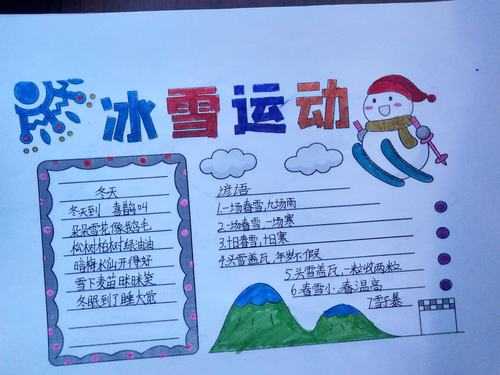 冰雪运动
冬天
冬天到 喜鹊叫
朵朵雪花像鹅毛
松树柏树绿油油
腊梅水仙开得好
雪下麦苗眯眯笑
冬眠到了睡大觉
谚语
1.一场春雪,九场雨
2.一场春雪 一场寒
3.十日春雪,十日寒
4.头雪盖瓦,年岁不假
5.头雪盖瓦,一粒收两粒
6.春雪小,春温高
7.雪千暴